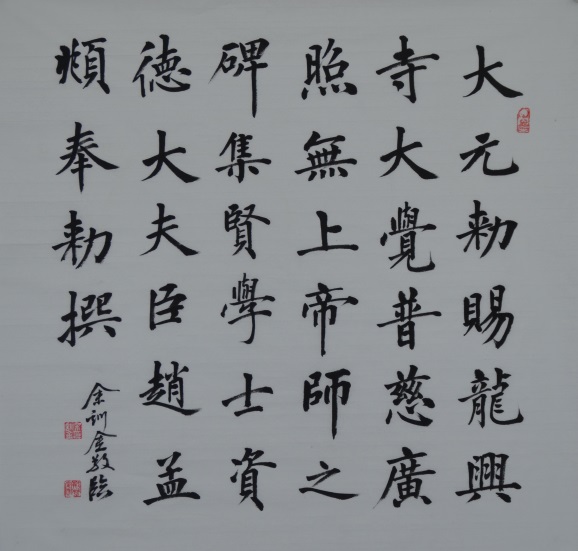 大元勅賜龍興
寺大覺普慈廣
照無上帝師之
碑集賢學士資
德大夫臣趙孟
頫奉勅撰
余訓金敬臨